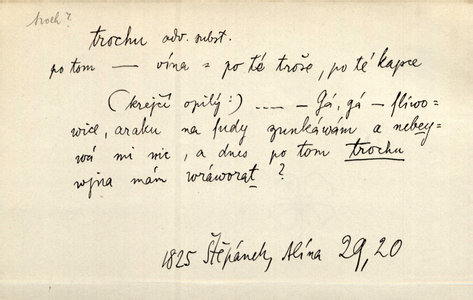 troch?
trochu adv. subst.
po tom — vína = po té troše, po té kapce
(krejčí opilý:) .... – Gá, gá – sliwo=
wice, araku na pudy zunkáwám a nebey=
wá mi nic, a dnes po tom trochu
wjna mám wráworat?
1825 Štěpánek, Alína 29, 20